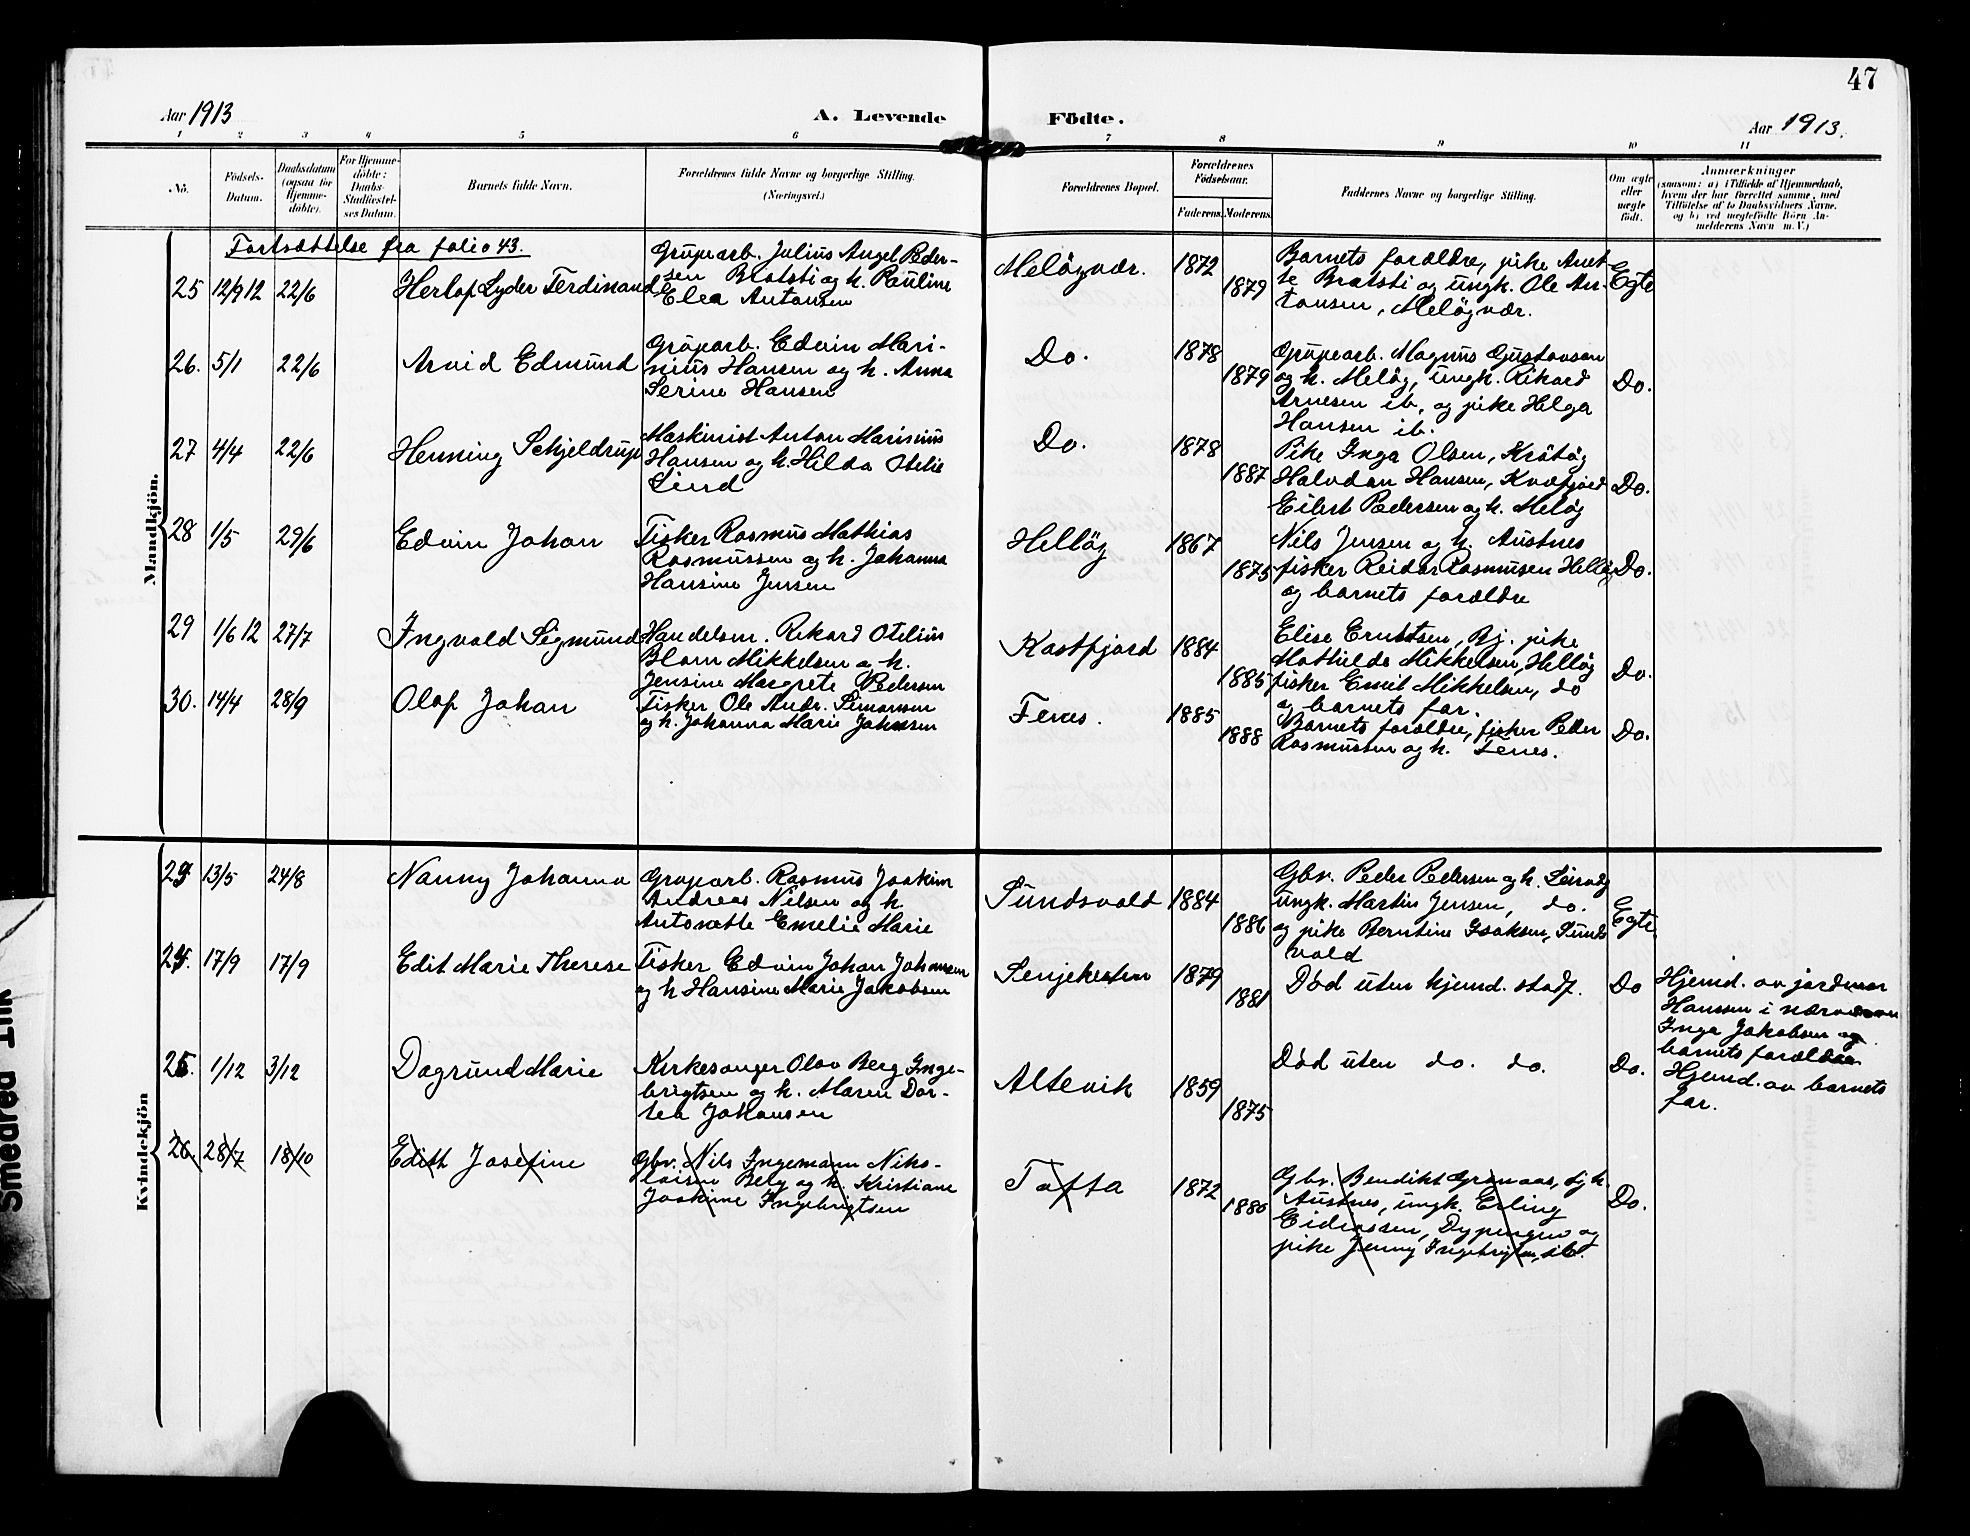 47
Aar 1913
A. Levende
Födte.
Aar 1913.
1 2 3 4 5 6 7 8 9 10 11
No. Födsels-Datum. Daabsdatum (ogsaa for Hjemme-döbte). For Hjemme-döbte: Daabs-Stadfæstel-ses Datum. Barnets fulde Navn. Forældrenes fulde Navne og borgerlige Stilling. (Næringsvei.) Forældrenes Bopæl. Forældrenes Födselsaar. Faderens. Moderens. Faddernes Navne og borgerlige Stilling. Om ægte eller uægte födt. Anmærkninger (saasom: a) i Tilfælde af Hjemmedaab, hvem der har forrettet samme, med Tilföielse af to Daabsvidners Navne, og b) ved uegtefödte Börn An-melderens Navn m. V.)
Mandkjön.
Fortsættelse fra folio 43.
25 12/9 12 22/6 Herlof Lyder Ferdinand
Grupearb. Julius Angel Peder-
sen Bratsti og h. Pauline
Elea Antonsen
Meløyvær. 1872 1879
Barnets forældre, pike Anet-
te Bratsti og ungk. Ole An-
tonsen, Meløyvær.
Egte
26. 5/1 22/6 Arvid Edmund
Gruparb. Edvin Mari-
nius Hansen og h. Anna
Serine Hansen
Do. 1878 1879
Grupearb. Magnus Gustavsen
og h. Meløy, ungk. Rikard
Arnesen ib, og pike Helga
Hansen ib.
Do.
27 4/4 22/6 Henning Schjeldrup
Maskinist Anton Marinius
Hansen og h. Hilda Otelie
Lind
Do. 1878 1887
Pike Inga Olsen, Krøtøy
Halvdan Hansen, Kvæfjord
Eilert Pedersen og h. Meløy
Do.
28 1/5 29/6 Edvin Johan
Fisker Rasmus Mathias
Rasmussen og h. Johanna
Hansine Jensen
Helløy 1867 1875
Nils Jensen og h. Austnes
fisker Reidar Rasmusen Helløy
og barnets forældre
Do.
29 1/6 12 27/7 Ingvald Sigmund
Handelsm. Rikard Otelius
Blom Mikkelsen og h.
Jensine Margrete Pedersen
Kastfjord 1884 1885
Elise Erntsen, Bj. pike
Mathilde Mikkelsen, Helløy
fisker Emil Mikkelsen, do
og barnets far.
Do.
30. 14/4 28/9 Olaf Johan
Fisker Ole Andr. Simonsen
og h. Johanna Marie Johansen
Fenes. 1885 1888
Barnets forældre, fisker Peder
Rasmussen og h. Fenes.
Do.
Kvindekjön
23 13/5 24/8 Nanny Johanna
Gruparb. Rasmus Joakim
Andreas Nilsen og h.
Antonette Emelie Marie
Sundsvold 1884 1886
Gbr. Peder Pedersen og h. Leirvåg
ungk. Martin Jensen, do.
og pike Berntine Isaksen, Sunds
vold
Egte.
24. 17/9 17/9 Edit Marie Therese
Fisker Edvin Johan Johansen
og h Hansine Marie Jakobsen
Senjehesten 1879 1881
Død uten hjemd. stadf.
Do
Hjemd. av jordmor
Hanssen i nærværen
Inga Jakobsen og
barnets forældre
25. 1/12 3/12 Dagrund Marie
Kirkesanger Olav Berg Inge-
brigtsen og h. Maren Dor-
tea Johansen
Altevik 1859 1875
Død uten do. do.
Do.
Hjemd. av barnets
far.
26. 28/7 18/10 Edith Josefine
Gbr. Nils Ingemann Niko-
laisen Berg og h. Kristiane
Joakime Ingebrigtsen
Tofta 1872 1880
Gbr. Bendikt Grønaas, og h.
Austnes, ungk. Erling
Eidnassen, Dypingen og
pike Jenny Ingebrigtsen, ib.
Do.
Smedred Ink